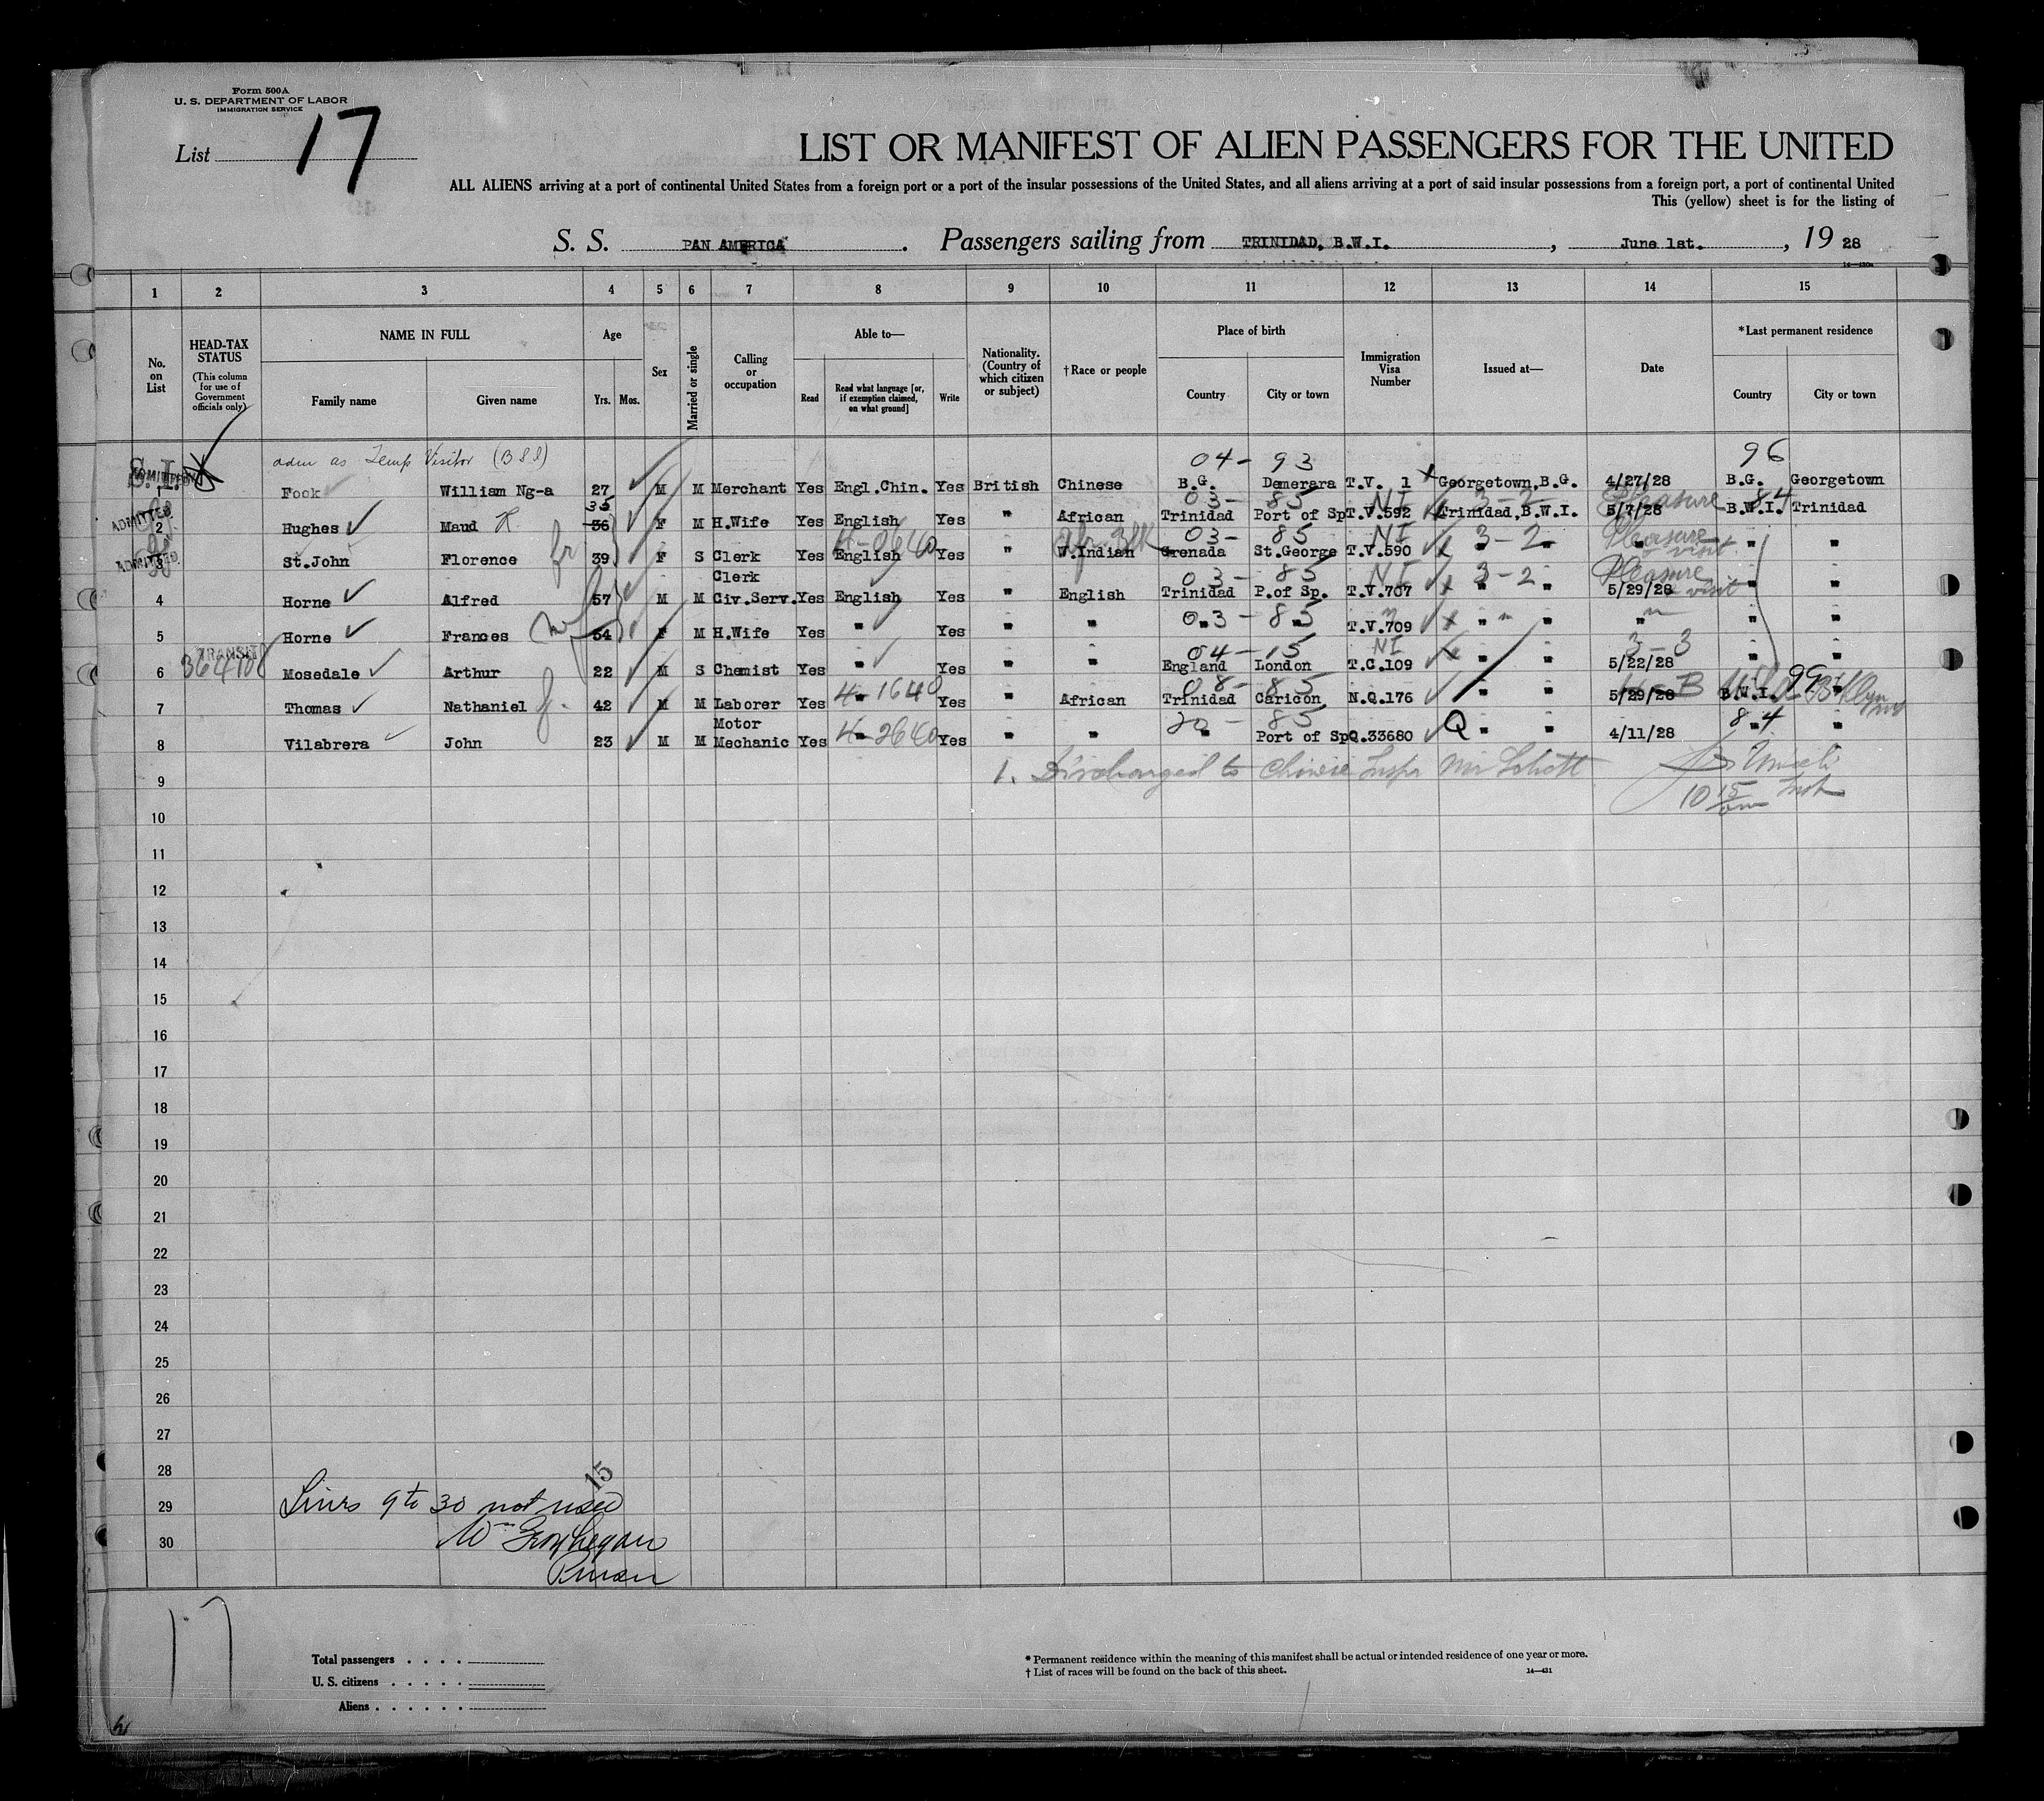 Form 500A
U. S. DEPARTMENT OF LABOR
IMMIGRATION SERVICE
List 17
LIST OR MANIFEST OF ALIEN PASSENGERS FOR THE UNITED
ALL ALIENS arriving at a port of continental United States from a foreign port or a port of the insular possessions of the United States, and all aliens arriving at a port of said insular possessions from a foreign port, a port of continental United
This (yellow) sheet is for the listing of
S. S. PAN AMERICA. Passengers sailing from TRINIDAD, B.W.I., June 1st., 19 28
1 2 3 4 5 6 7 8 9 10 11 12 13 14 15
No. on List
HEAD-TAX STATUS
(This column for use of Government officials only)
NAME IN FULL
Family name
Given name
Age
Yrs. Mos.
Sex
Married or single
Calling or occupation
Able to—
Read
Read what language [or, if exemption claimed, on what ground]
Write
Nationality. (Country of which citizen or subject)
†Race or people
Place of birth
Country
City or town
Immigration Visa Number
Issued at—
Date
*Last permanent residence
Country
City or town
adm as Temp Visitor (BSI) 04- 93 96
S.I. ADMITTED
1 Fook William Ng-a 27 M M Merchant Yes Engl.Chin. Yes British Chinese B.G. Demerara T.V. 1 Georgetown,B.G. 4/27/28 B.G. Georgetown
35 03- 85 NI 3-2 Pleasure 84
ADMITTED
2 Hughes Maud 36 F M H.Wife Yes English Yes " African Trinidad Port of Sp T.V.592 Trinidad,B.W.I. 5/7/28 B.W.I. Trinidad
03- 85 NI 3-2 Pleasure visit
ADMITTED
3 St.John Florence 39 F S Clerk Yes English Yes " W.Indian Grenada St.George T.V.590 " " " " "
Clerk 03- 85 NI 3-2 Pleasure visit
4 Horne Alfred 57 M M Civ.Serv. Yes English Yes " English Trinidad P.of Sp. T.V.707 " " 5/29/28 " "
03- 85
5 Horne Frances 54 F M H.Wife Yes " Yes " " " " T.V.709 " " " " "
TRANSIT 04-15 NI 3-3
6 Mosedale Arthur 22 M S Chemist Yes " Yes " " England London T.C.109 " " 5/22/28 " "
4-1640 08- 85 99
7 Thomas Nathaniel 42 M M Laborer Yes " Yes " African Trinidad Caricon N.Q.176 " " 5/29/28 B.W.I. "
Motor 4-2640 20- 85 84
8 Vilabrera John 23 M M Mechanic Yes " Yes " " " Port of Sp Q.33680 Q " " 4/11/28 " "
9 1. Discharged to Chinese Inspr Mr
10 10 15 am
11
12
13
14
15
16
17
18
19
20
21
22
23
24
25
26
27
28
15
29 Lines 9 to 30 not used
30 Wm
17
Total passengers
U. S. citizens
Aliens
* Permanent residence within the meaning of this manifest shall be actual or intended residence of one year or more.
† List of races will be found on the back of this sheet.
14—431